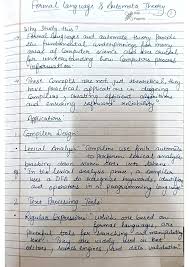 Formal Language & Automata Theory
Why Study this?
Formal languages and automata theory provide
the fundamental underpinning for many
areas of Computer science and are crucial
for understanding how computers process
information.
These Concepts are not just theoretical, they
have practical applications in designing
Compilers, text processing applications
and ensuring software reliability.
Applications
1 Compiler Design
Lexical Analysis: Compilers use finite automata
to perform lexical analysis,
breaking down source code into tokens.
In the lexical analysis phase, a compiler
use a DFA to recognize keywords, identifiers
and operators in a programming language
2 Text Processing Tools
Regular Expressions, which are based on
formal languages, are
powerful tools for searching & manipulating
text. They are widely used in text
editors, search engines, data validation